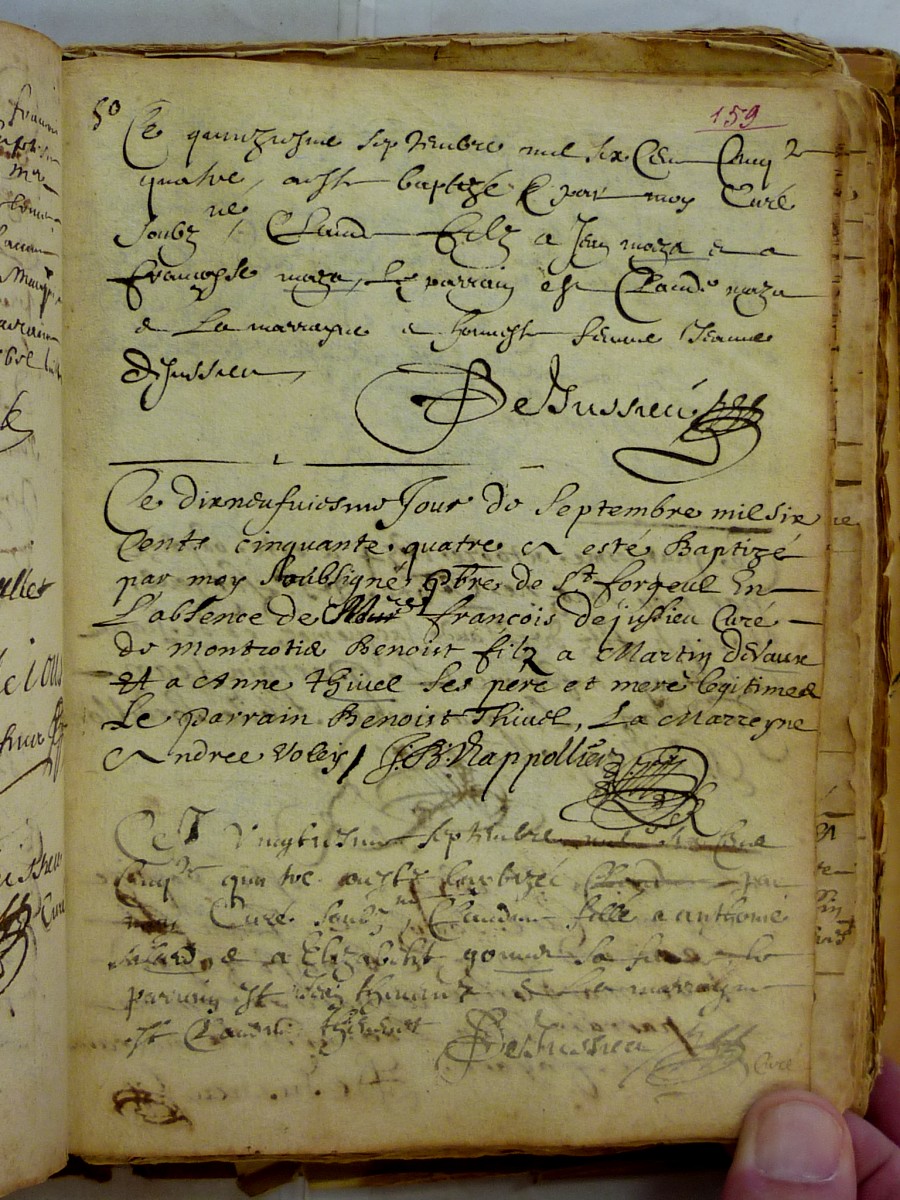 50
159
Ce quinziesme septembre mil six Cen Cinq
quatre, a este baptizé par moy Curé
soubz ne, Claude filz a Jean maza & a
françoyse maza, Le parrain est Claude maza
& La marrayne e honneste femme Jeanne
dejussieu
DeJussieu
Ce dixneufuiesme Jour de Septembre mil six
Cents cinquante quatre a esté Baptizé
par moy Soubsigné pbre de St forgeul En
L'absence de françois dejussieu Curé
de montrotié Benoist filz a Martin deVaux
Et a Anne thivel ses pere et mere legitimes
Le parrain Benoist Thivel, La Marreyne
Andree Voley J.B. Rappollier
Cej vingtiesme septembre mil six Cens
Cinq quatre a este baptizée par
moy Curé soubz ne Claudine fille a anthoine
& a Elizabeth sa femme le
parrain est & La marrayne
est Claudine
DeJussieu
Curé